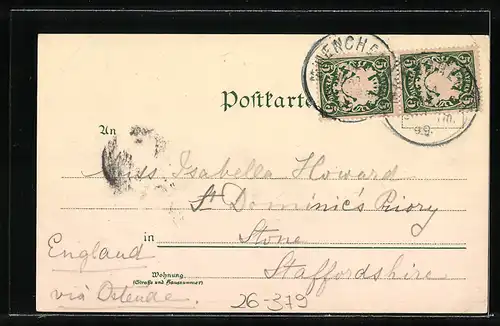 MUENCHEN
Postkarte
An
Miss Isabella Howard
St Dominic's Priory
in Stone
Staffordshire
England
via Ostende.
Wohnung
(Straße und Hausnummer)
26-379